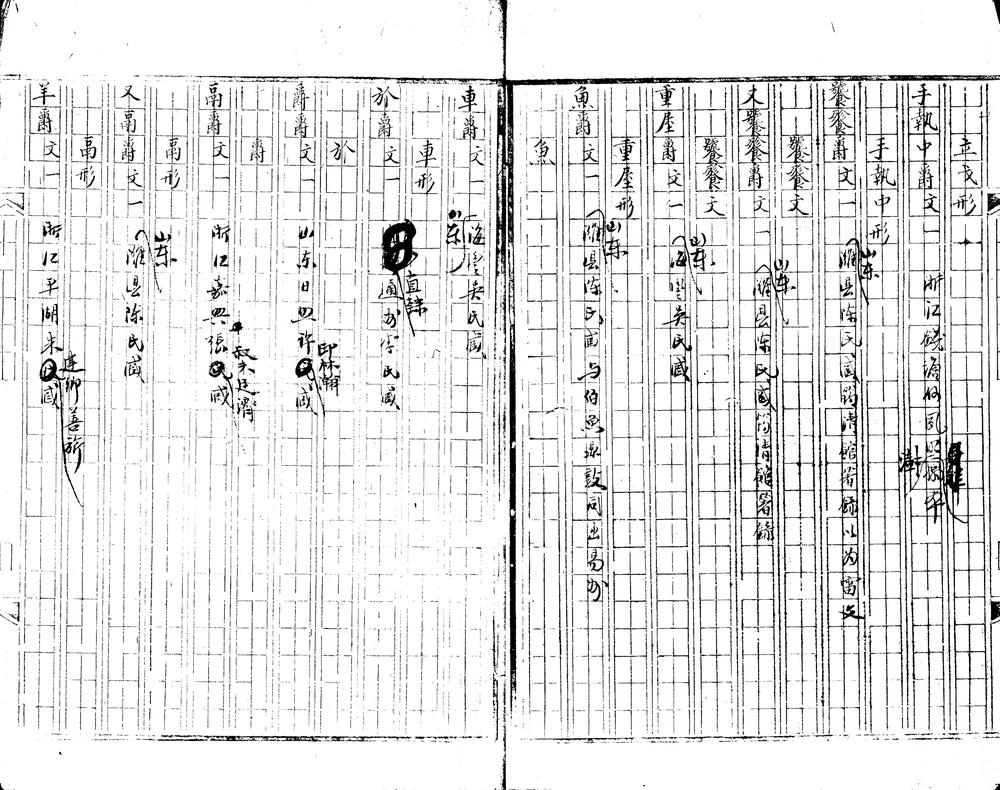 立戈形
手執中爵文一 浙江錢塘何氏
手執中形
饕餮爵文一 山东濰县陈氏藏筠清館著錄以为雷文
饕餮文
又饕餮爵文一 山东濰县陈氏藏筠清館著錄
饕餮文
重屋爵文一 山东海豐吳氏藏
重屋形
魚爵文一 山东濰县陈氏藏与伯魚鼎敦同出易州
魚
車爵文一 山东海豐吳氏藏
車形
於爵文一 直隸通州李氏藏
於
爵文一 山东日照許印林瀚藏
爵
鬲爵文一 浙江嘉興張叔未廷濟藏
鬲形
又鬲爵文一 山东濰县陈氏藏
鬲形
羊爵文一 浙江平湖朱建卿善旂藏